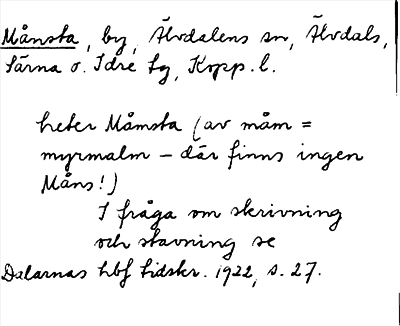 Månsta, by, Älvdalens sn, Älvdals,
Särna o. Idre tg, Kopp. l.
heter Måmsta (av måm =
myrmalm – där finns ingen
Måns!)
I fråga om skrivning
och stavning se
Dalarnas hbf tidskr. 1922, s. 27.